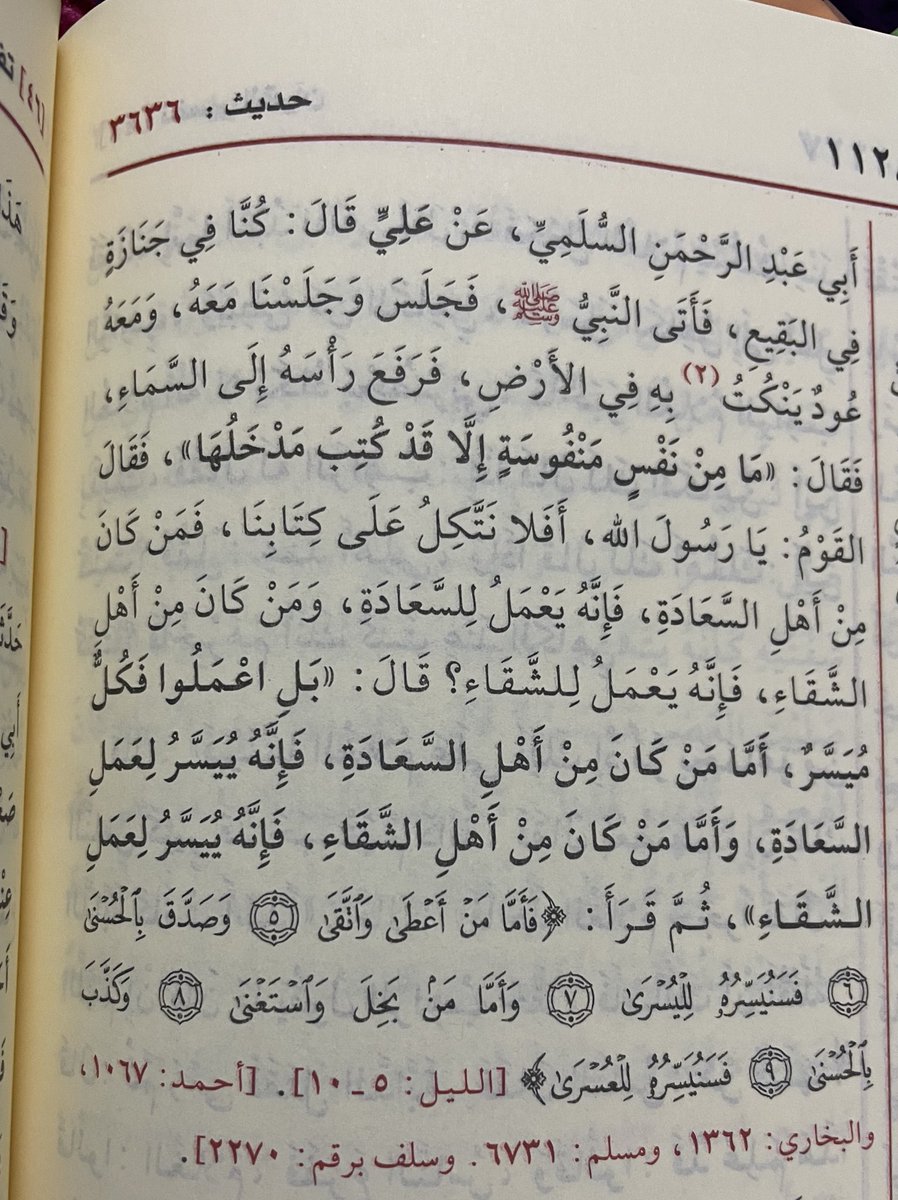 حديث : ٣٦٣٦
أَبِي عَبْدِ الرَّحْمَنِ السُّلَمِيِّ، عَنْ عَلِيٍّ قَالَ: كُنَّا فِي جَنَازَةٍ
فِي البَقِيعِ، فَأَتَى النَّبِيُّ ﷺ، فَجَلَسَ وَجَلَسْنَا مَعَهُ، وَمَعَهُ
عُودٌ يَنْكُتُ (٢) بِهِ فِي الأَرْضِ، فَرَفَعَ رَأْسَهُ إِلَى السَّمَاءِ،
فَقَالَ: «مَا مِنْ نَفْسٍ مَنْفُوسَةٍ إِلَّا قَدْ كُتِبَ مَدْخَلُهَا»، فَقَالَ
القَوْمُ: يَا رَسُولَ الله، أَفَلا نَتَّكِلُ عَلَى كِتَابِنَا، فَمَنْ كَانَ
مِنْ أَهْلِ السَّعَادَةِ، فَإِنَّهُ يَعْمَلُ لِلسَّعَادَةِ، وَمَنْ كَانَ مِنْ أَهْلِ
الشَّقَاءِ، فَإِنَّهُ يَعْمَلُ لِلشَّقَاءِ؟ قَالَ: «بَلِ اعْمَلُوا فَكُلٌّ
مُيَسَّرٌ، أَمَّا مَنْ كَانَ مِنْ أَهْلِ السَّعَادَةِ، فَإِنَّهُ يُيَسَّرُ لِعَمَلِ
السَّعَادَةِ، وَأَمَّا مَنْ كَانَ مِنْ أَهْلِ الشَّقَاءِ، فَإِنَّهُ يُيَسَّرُ لِعَمَلِ
الشَّقَاءِ»، ثُمَّ قَرَأَ: ﴿فَأَمَّا مَنْ أَعْطَىٰ وَٱتَّقَىٰ ٥ وَصَدَّقَ بِٱلْحُسْنَىٰ
٦ فَسَنُيَسِّرُهُۥ لِلْيُسْرَىٰ ٧ وَأَمَّا مَنۢ بَخِلَ وَٱسْتَغْنَىٰ ٨ وَكَذَّبَ
بِٱلْحُسْنَىٰ ٩ فَسَنُيَسِّرُهُۥ لِلْعُسْرَىٰ﴾ [الليل: ٥ ـ ١٠]. [أحمد: ١٠٦٧،
والبخاري: ١٣٦٢، ومسلم: ٦٧٣١. وسلف برقم: ٢٢٧٠].